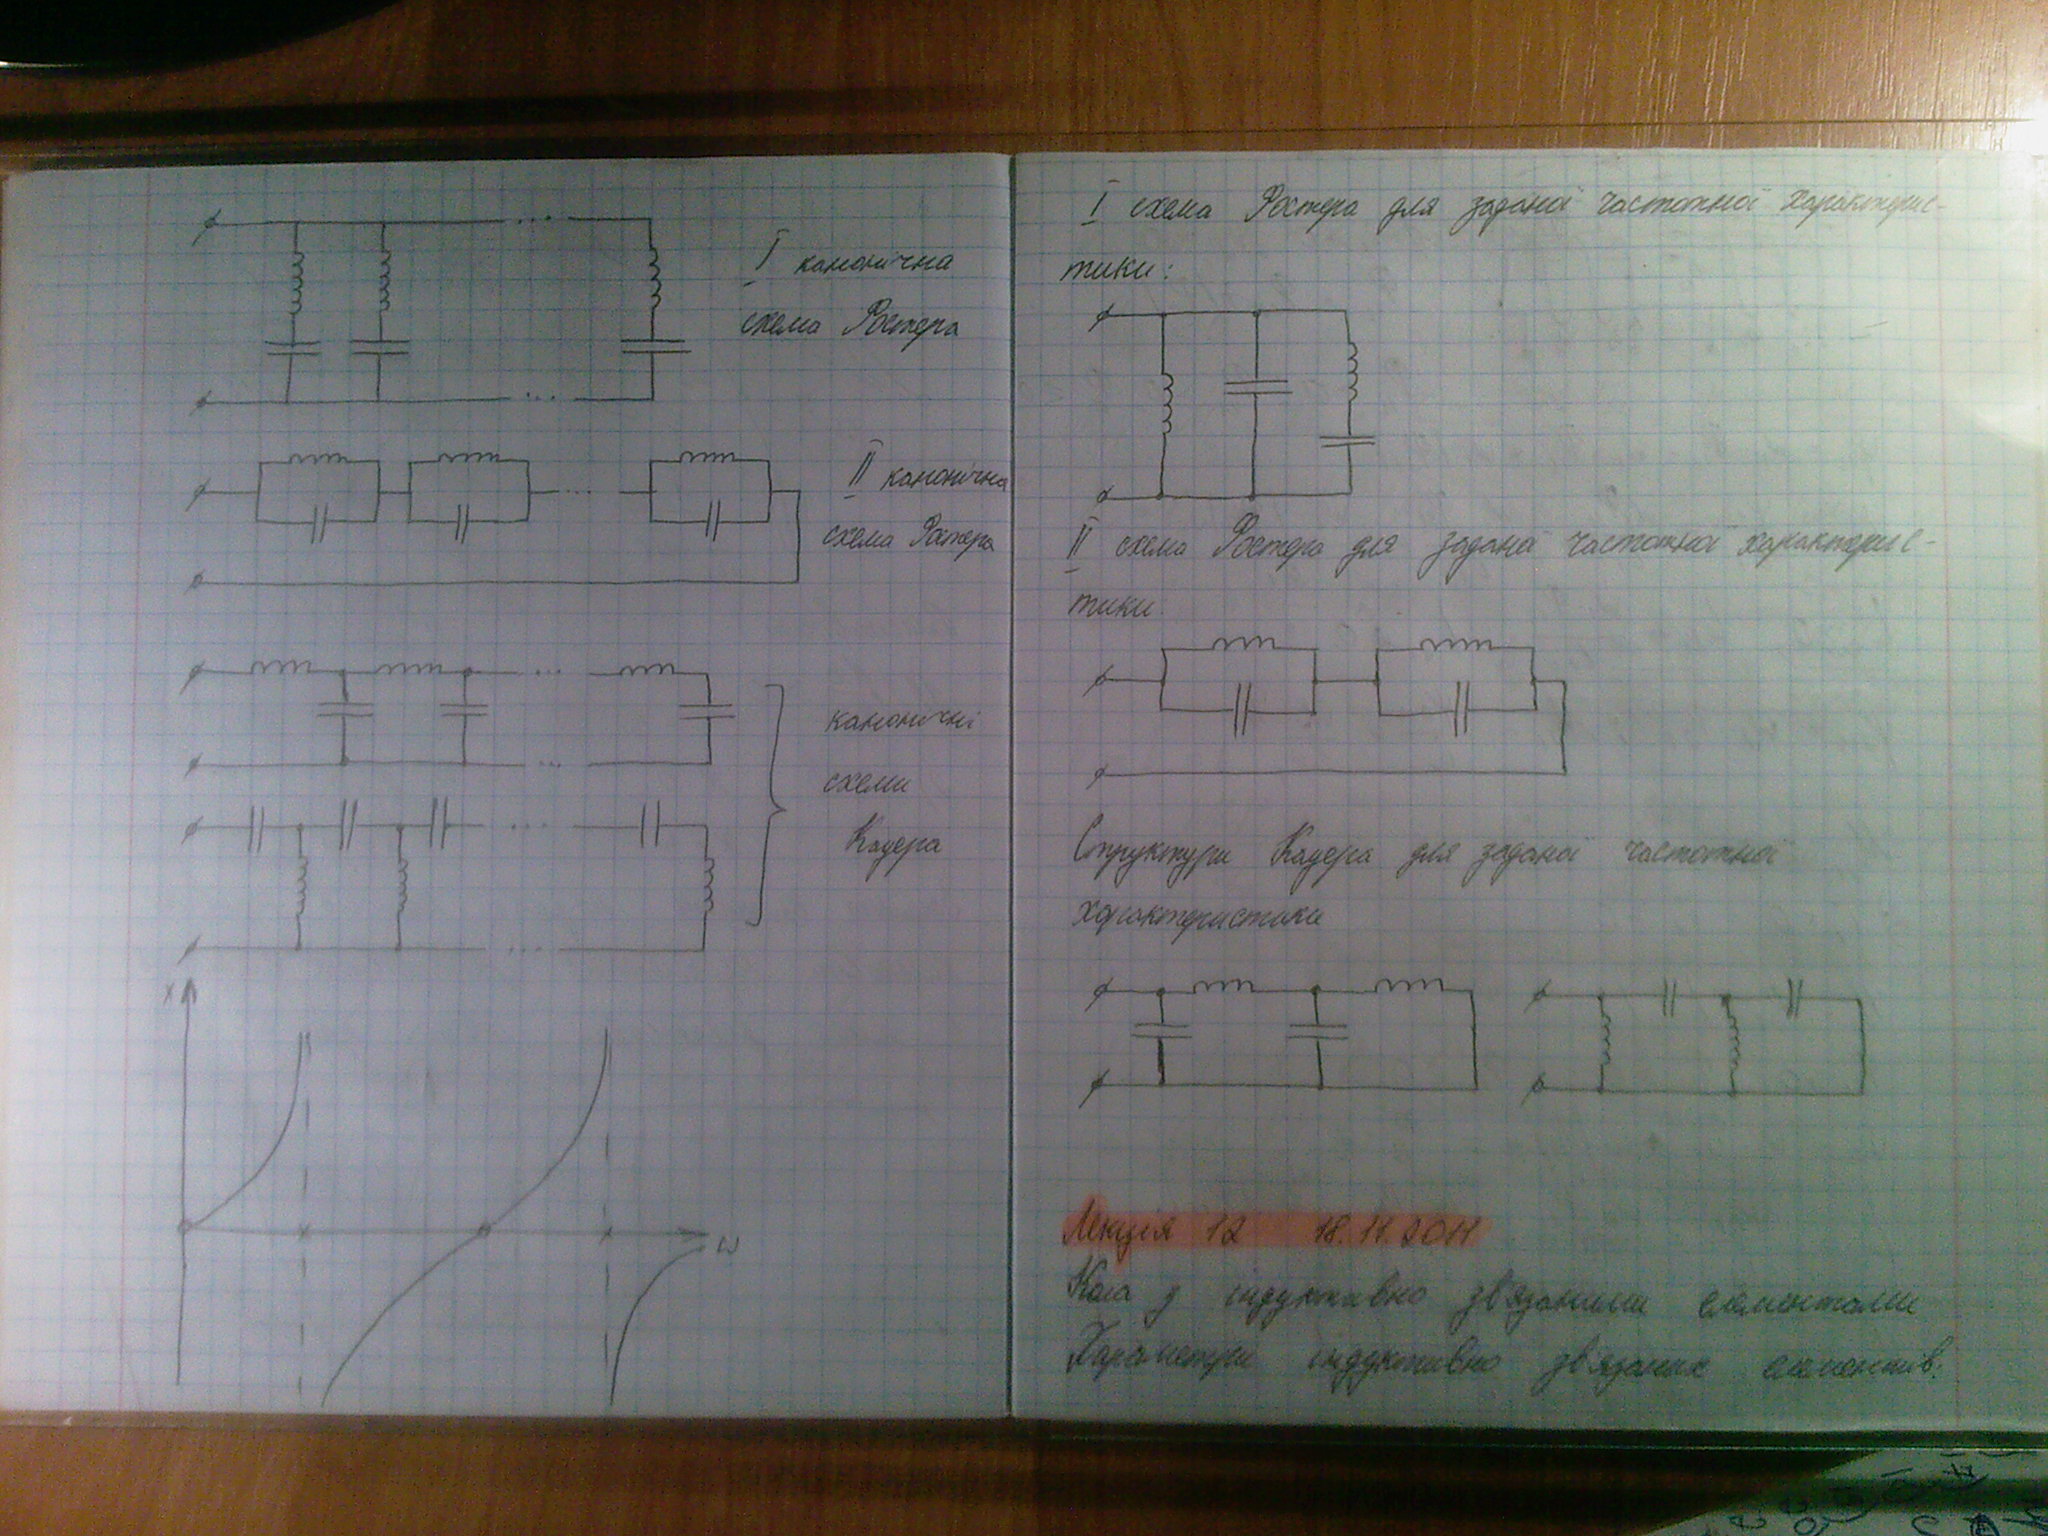 I канонічна
схема Фостера
II канонічна
схема Фостера
канонічні
схеми
Кауера
X
ω
I схема Фостера для заданої частотної характерис-
тики:
II схема Фостера для заданої частотної характерис-
тики
Структури Кауера для заданої частотної
характеристики
Лекція 12 18.11.2011
Кола з індуктивно зв'язаними елементами
Параметри індуктивно зв'язаних елементів.